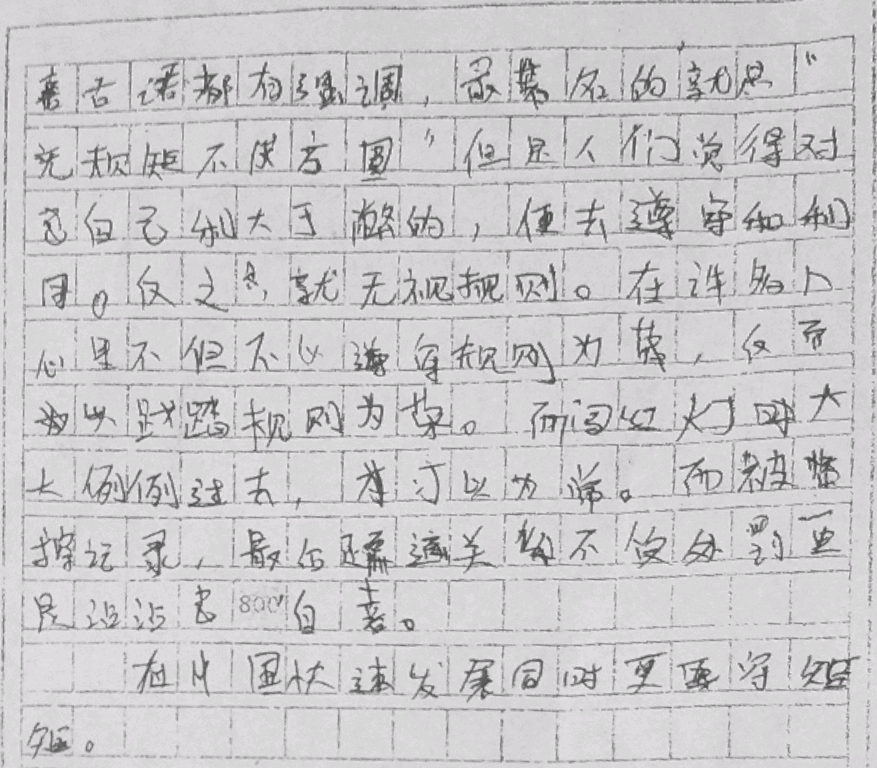 古语都有强调，最著名的就是“
无规矩不成方圆”但是人们觉得对
于自己利大于弊的，便去遵守和利
用。反之，就无视规则。在许多人
心里不但不以遵守规则为荣，反而
以践踏规则为荣。而闯红灯时大
大例例过去，习以为常。而被警
察记录，最后还需通关系不仅处罚
沾沾 800 自喜。
在中国快速发展同时更要守矩
矩。